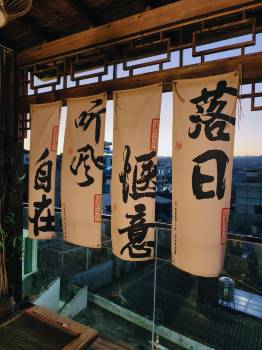 自在
听风
惬意
落日